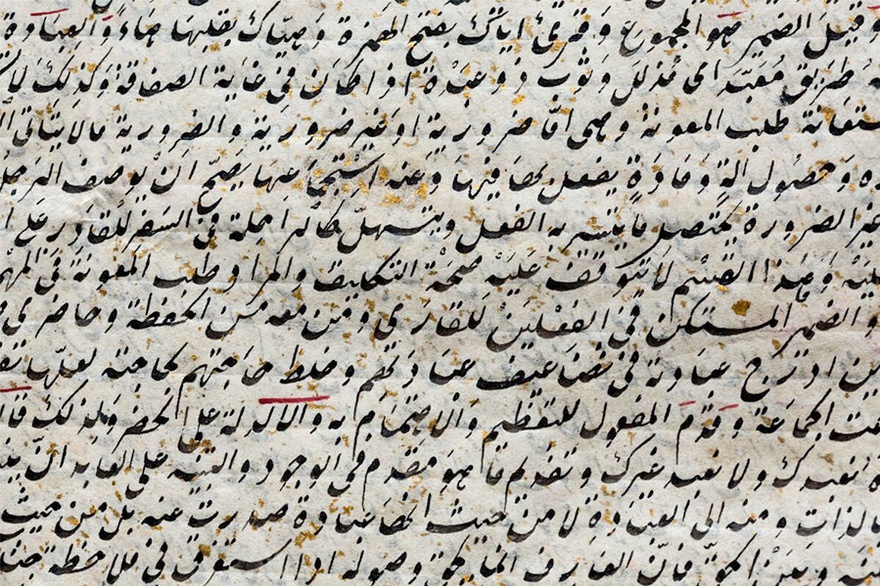 وقيل الضمير هو المجموع وقرئ اياك بفتح الهمزة وهياك بقلبها هاء والعبادة
طريق معبد اى مذلل وثوب ذو عبدة اذا كان فى غاية الصفاقة وكذلك لا
ستعانة طلب المعونة وهى اما ضرورية او غير ضرورية والضرورية مالايتاتى
ره وحصول الة ومادة يفعل بها فيها وعند استجماعها يصح ان يوصف الرجل
غير الضرورة تحصيل ما يتيسر به الفعل ويتسهل كالراحلة فى السفر للقادر على
عليه وهذا القسم لا يتوقف عليه صحة التكليف والمراد طلب المعونة فى المهم
والضمير المستكن فى الفعلين للقارى ومن معه من الحفظة وحاضرى
ين ادرج عبادته فى تضاعيف عبادتهم وخلط حاجتهم بحاجته لعلها تق
عت الجماعة وقدم المفعول للتعظيم والاهتمام به والدلالة على الحصر ولذلك قال
ه نعبدك ولا نعبد غيرك وتقديم ما هو مقدم فى الوجود والتنبيه على العابد ان ين
بالذات ومنه الى العبادة لا من حيث انها عبادة صدرت عنه بل من حيث
وبين الحق فان العارف انما يحق وصوله اذا استغرق فى ملاحظة جنا